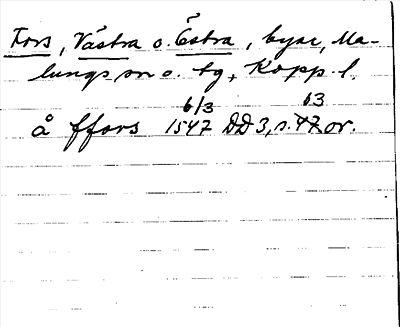 Fors, Västra o. Östra, byar, Ma-
lungs sn o. tg, Kopp. l.
6/3 63
å ffors 1547 DD3, s. 47 or.